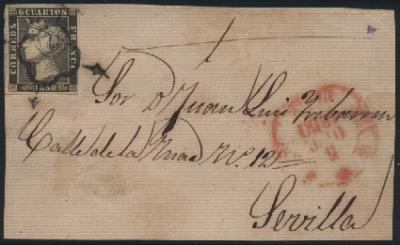 6 CUARTOS
CORREOS
FRANCO
1850
Sor. D. Juan Luis
Calle de la Mar Nº 121
Sevilla